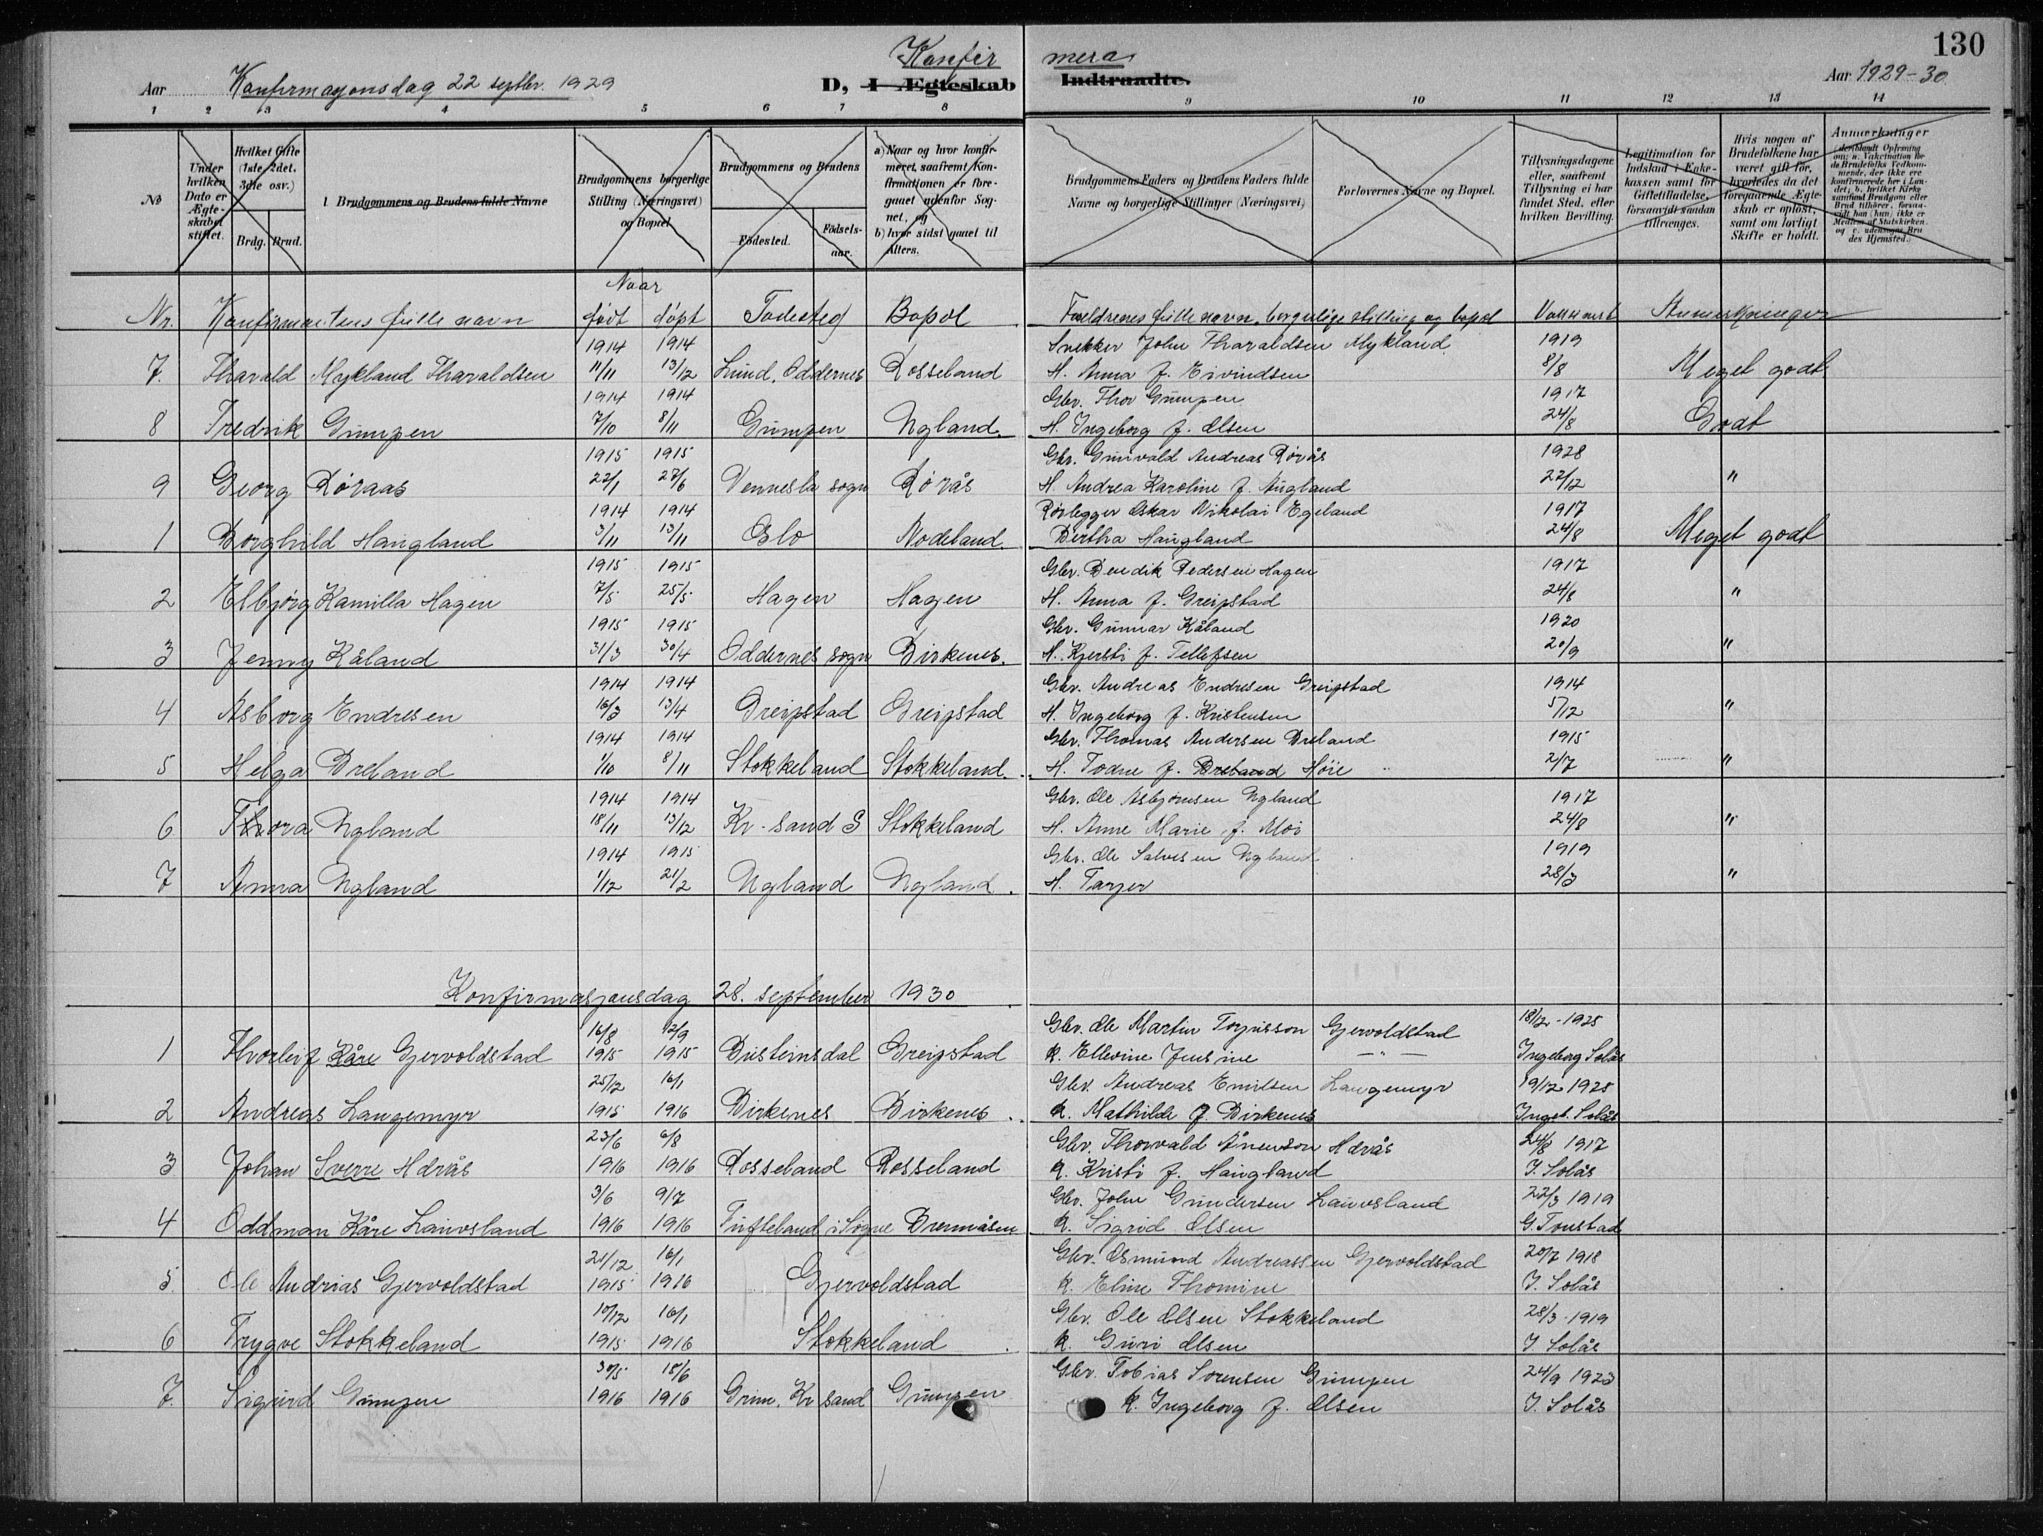 130
Konfir mera
Aar Konfirmasjonsdag 22 septbr. 1929 D, I Ægteskab Indtraadte. Aar 1929-30
1 2 3 4 5 6 7 8 9 10 11 12 13 14
No
Under hvilken Dato er Ægteskabet stiftet.
Hvilket Gifte (1ste 2det, 3die osv.)
Brdg. Brud.
Brudgommens og Brudens fulde Navne
Brudgommens borgerlige Stilling (Næringsvei) og Bopæl
Brudgommens og Brudens
Fødested. Fødselsaar.
a) Naar og hvor konfirmeret, saafremt Konfirmationen er foregaaet udenfor Sognet, og
b) hvor sidst gaaet til Alters.
Brudgommens Faders og Brudens Faders fulde Navne og borgerlige Stillinger (Næringsvei)
Forlovernes Navne og Bopæl.
Tillysningsdagene eller, saafremt Tillysning ei har fundet Sted, efter hvilken Bevilling.
Legitimation for Indskud i Enkekassen samt for Giftetilladelse, forsaavidt saadan tiltrænges.
Hvis nogen af Brudefolkene har været gift før, hvorledes da det foregaaende Ægteskab er opløst, samt om lovligt Skifte er holdt.
Anmærkninger (deriblandt Oplysning om: a. Vakcination for de Brudefolks Vedkommende, der ikke ere konfirmerede her i Landet; b. hvilket Kirkesamfund Brudgom eller Brud tilhører, forsaavidt han (hun) ikke er Medlem af Statskirken, og c. udensogns Brudes Hjemsted.)
Naar
Nr. Konfirmantens fulle navn født døpt Fødested Bopel Foreldrenes fulle navn, borgerlige stilling og bopel Vaksinert Anmerkninger
1914 1914 Snekker John Tharaldsen Mykland 1919
7. Tharald Mykland Tharaldsen 11/11 13/12 Lund, Oddernes Rosseland H. Anna f. Eivindsen 8/8 Meget godt
1914 1914 Gbr. Thor Gumpen 1917
8 Fredrik Gumpen 7/10 8/11 Gumpen Nyland. H. Ingeborg f. Olsen 24/8 Godt
1915 1915 Gbr. Gunvald Andreas Røråś 1928
9 Georg Røraas 22/1 27/6 Vennesla sogn Rørås H. Andrea Karoline f. Augland 22/12 "
1914 1914 Rørlegger Oskar Nikolai Egeland 1917
1 Borghild Haugland 3/11 13/11 Oslo Nodeland. Bertha Haugland 24/8 Meget godt
1915 1915 Gbr. Bendik Pedersen Hagen 1917
2 Elbjørg Kamilla Hagen 7/5 25/5 Hagen Hagen H. Anna f. Greipstad 24/8 "
1915 1915 Gbr. Gunnar Kåland 1920
3 Jenny Kåland 31/3 30/4 Oddernes sogn Birkenes. H. Kjersti f. Tellefsen 20/9 "
1914 1914 Gbr. Andreas Endresen Greipstad 1914
4 Asborg Endresen 16/3 13/4 Greipstad Greipstad H. Ingeborg f. Kristensen 5/12 "
1914 1914 Gbr. Thomas Andersen Breland 1915
5 Helga Breland 1/10 8/11 Stokkeland Stokkeland. H. Todne f. Breland Høie 2/7 "
1914 1914 Gbr. Ole Asbjørnsen Nyland 1917
6 Thora Nyland 18/11 13/12 Kr.sand S Stokkeland H. Anne Marie f. Moi 24/8 "
1914 1915 Gbr. Ole Salvesen Nyland 1919
7 Anna Nyland 1/12 21/2 Nyland Nyland. H. Tarjer 28/3 "
Konfirmasjonsdag 28. september 1930
16/8 12/9 Gbr. Ole Martin Torjusson Gjervoldstad 18/12-1928
1 Thorleif Kåre Gjervoldstad 1915 1915 Busteinsdal Greipstad k. Ellevine Jensine — " — Ingeborg Solås
25/12 16/1 Gbr. Andreas Emilsen Langemyr 19/12 1928
2 Andreas Langemyr 1915 1916 Birkenes Birkenes. k. Mathilde f. Birkenes Ingeb. Solås
23/6 6/8 Gbr. Thorvald Ånenson Harås 24/8 1917
3 Johan Sverre Harås 1916 1916 Rosseland Rosseland k. Kristi f. Haugland I. Solås
3/6 9/7 Gbr. John Gundersen Lauvsland 22/3 1919
4 Oddman Kåre Lauvsland 1916 1916 Tufteland i Søgne Bremåsen k. Sigrid Olsen G. Tonstad
21/12 16/1 Gbr. Osmund Andreassen Gjervoldstad 20/7 1918
5. Ole Andrias Gjervoldstad 1915 1916 Gjervoldstad k. Eline Thomine I. Solås
10/12 16/1 Gbr. Ole Olsen Stokkeland 28/3-1919
6 Trygve Stokkeland 1915 1916 Stokkeland k. Guri Olsen I Solås
30/5 18/6 Gbr Tobias Sørensen Gumpen 24/9 1923
7. Sigurd Gumpen 1916 1916 Grim, Kr sand Gumpen k. Ingeborg f. Olsen I. Solås